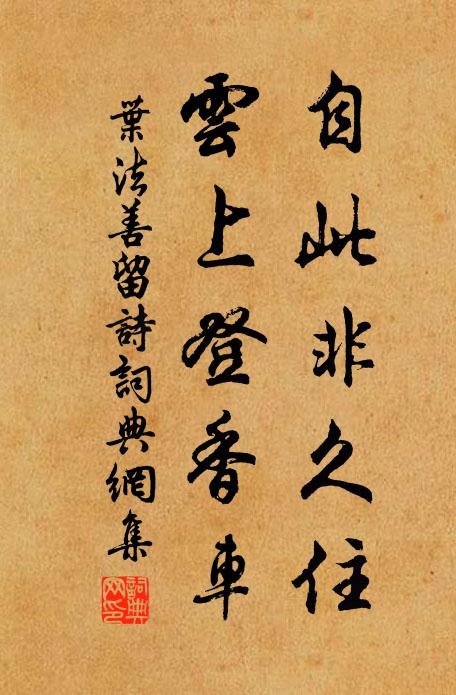 自此非久住
雲上登香車
葉法善留詩詞典網集
詞典網印